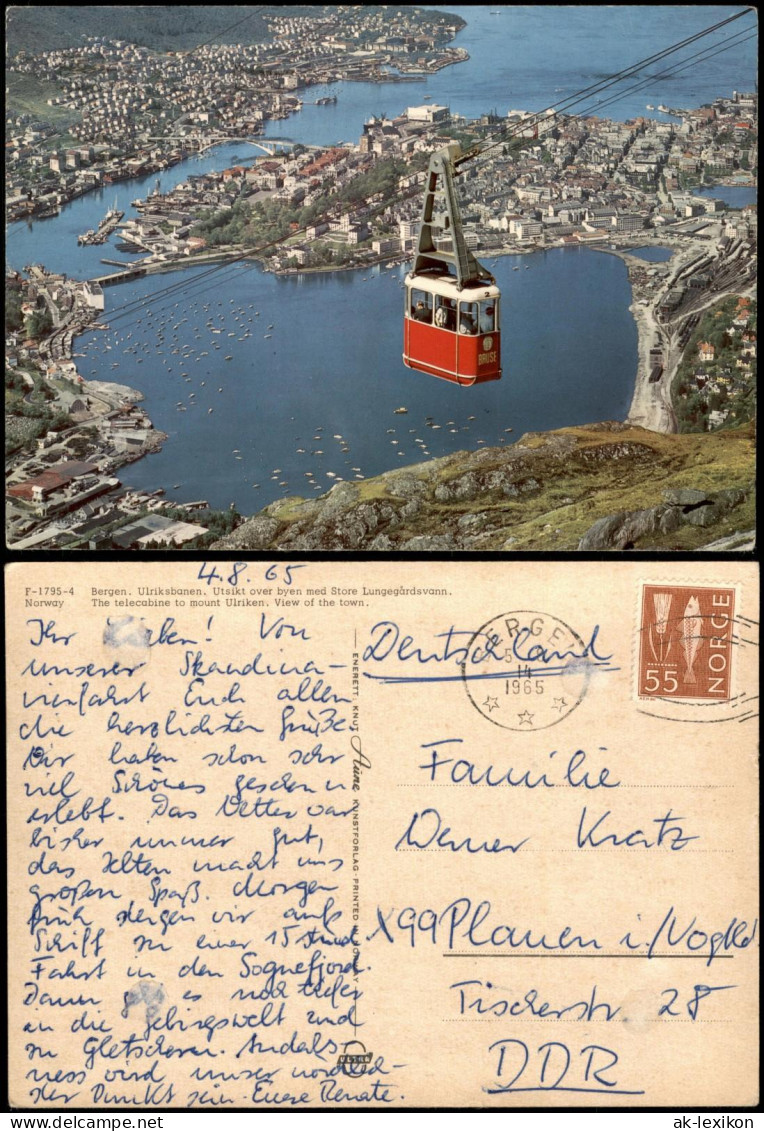 BRUSE
4.8.65
F-1795-4 Bergen. Ulriksbanen. Utsikt over byen med Store Lungegårdsvann.
Norway The telecabine to mount Ulriken. View of the town.
Ihr Lieben! Von
unserer Skandina-
vienfahrt Euch allen
die herzlichsten Grüße.
Wir haben schon sehr
viel Schönes gesehen u
erlebt. Das Wetter war
bisher immer gut,
das Zelten macht uns
großen Spaß. Morgen
früh steigen wir aufs
Schiff zu einer 15 stünd.
Fahrt in den Sognefjord.
Dann geht es noch tiefer
in die Gebirgswelt und
zu Gletschern. Åndals-
ness wird unser nördlich-
ster Punkt sein. Eure Renate.
ENERETT: KNUT Aune KUNSTFORLAG - PRINTED IN NORWAY
Deutschland
BERGEN
5
14
1965
NORGE
55
Familie
Werner Kratz
X99 Plauen i/Vogtld
Tischerstr 28
DDR
www.ansichtskarten-lexikon.de
ak-lexikon